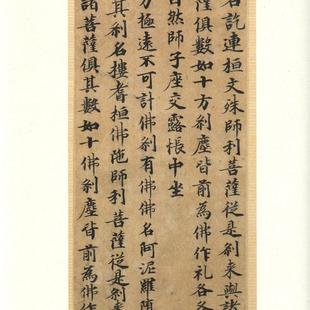 名訖連桓文殊師利菩薩從是剎来與諸
薩俱數如十方剎塵皆前為佛作礼各各
自然師子座交露帳中坐
方極遠不可計佛剎有佛佛名阿泥
其剎名摟耆桓佛陁師利菩薩從是剎来
諸菩薩俱其數如十佛剎塵皆前為佛作